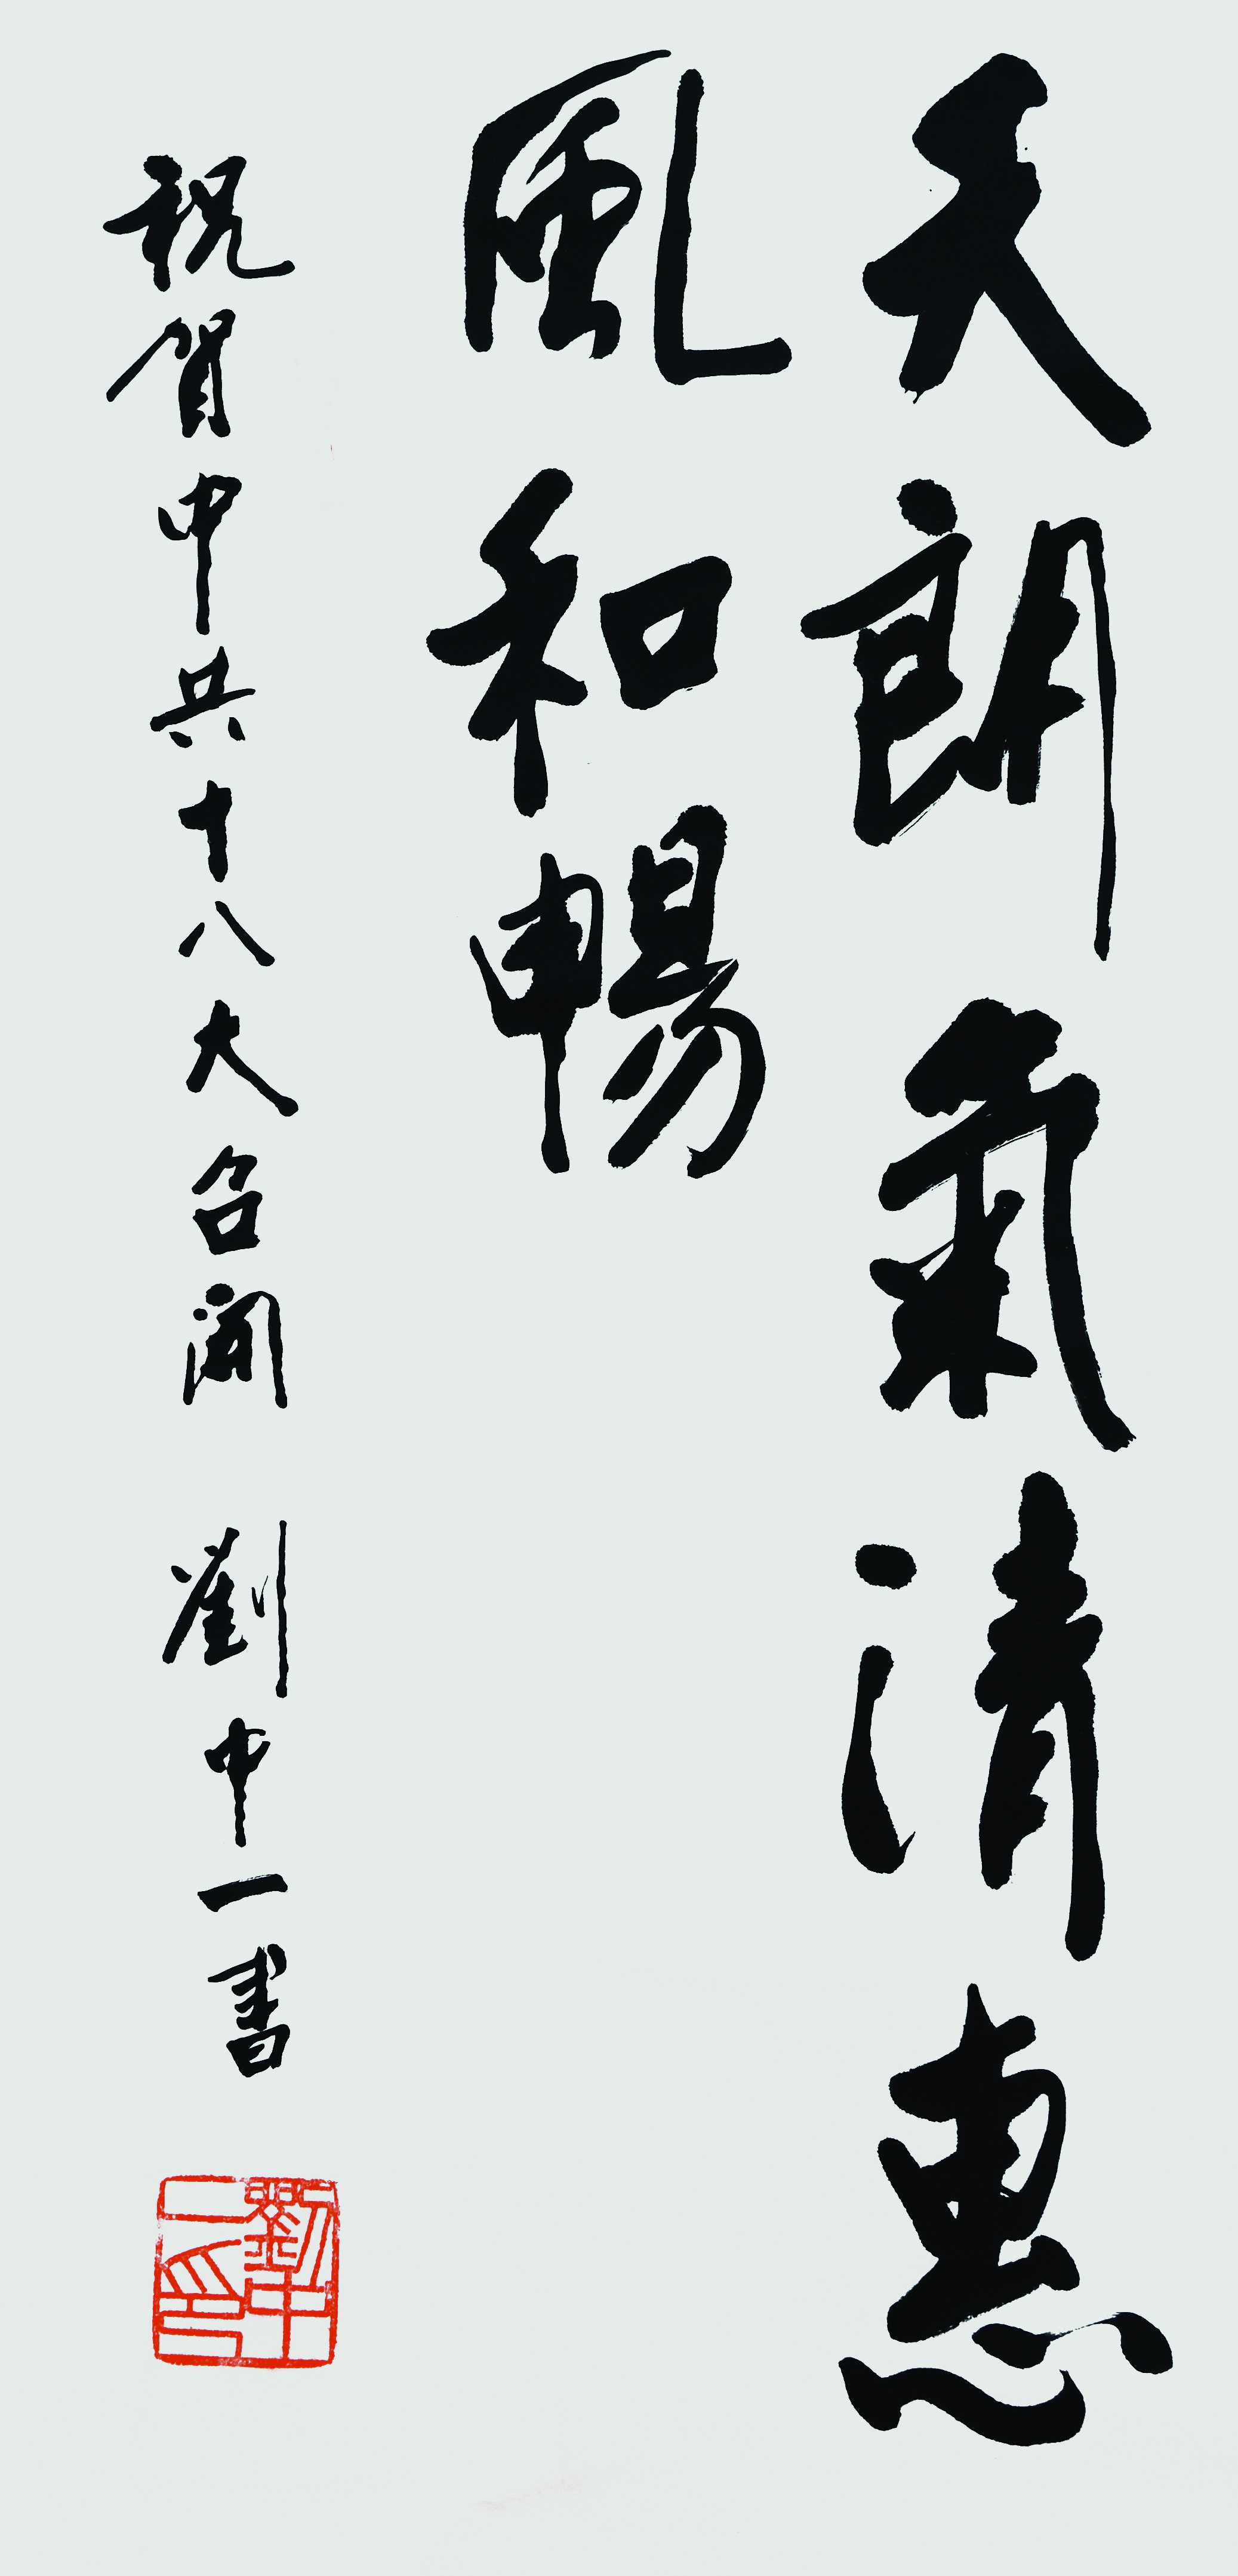 天朗氣清惠
風和暢
祝賀中共十八大召開 劉中一書
劉中一印